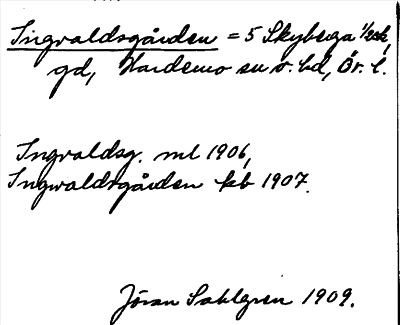 Ingvaldsgården = 5 Skyberga 1/2 sk,
gd, Hardemo sn o. hd, Ör. l.
Ingvaldsg. ml 1906,
Ingwaldsgården kb 1907.
Jöran Sahlgren 1909.